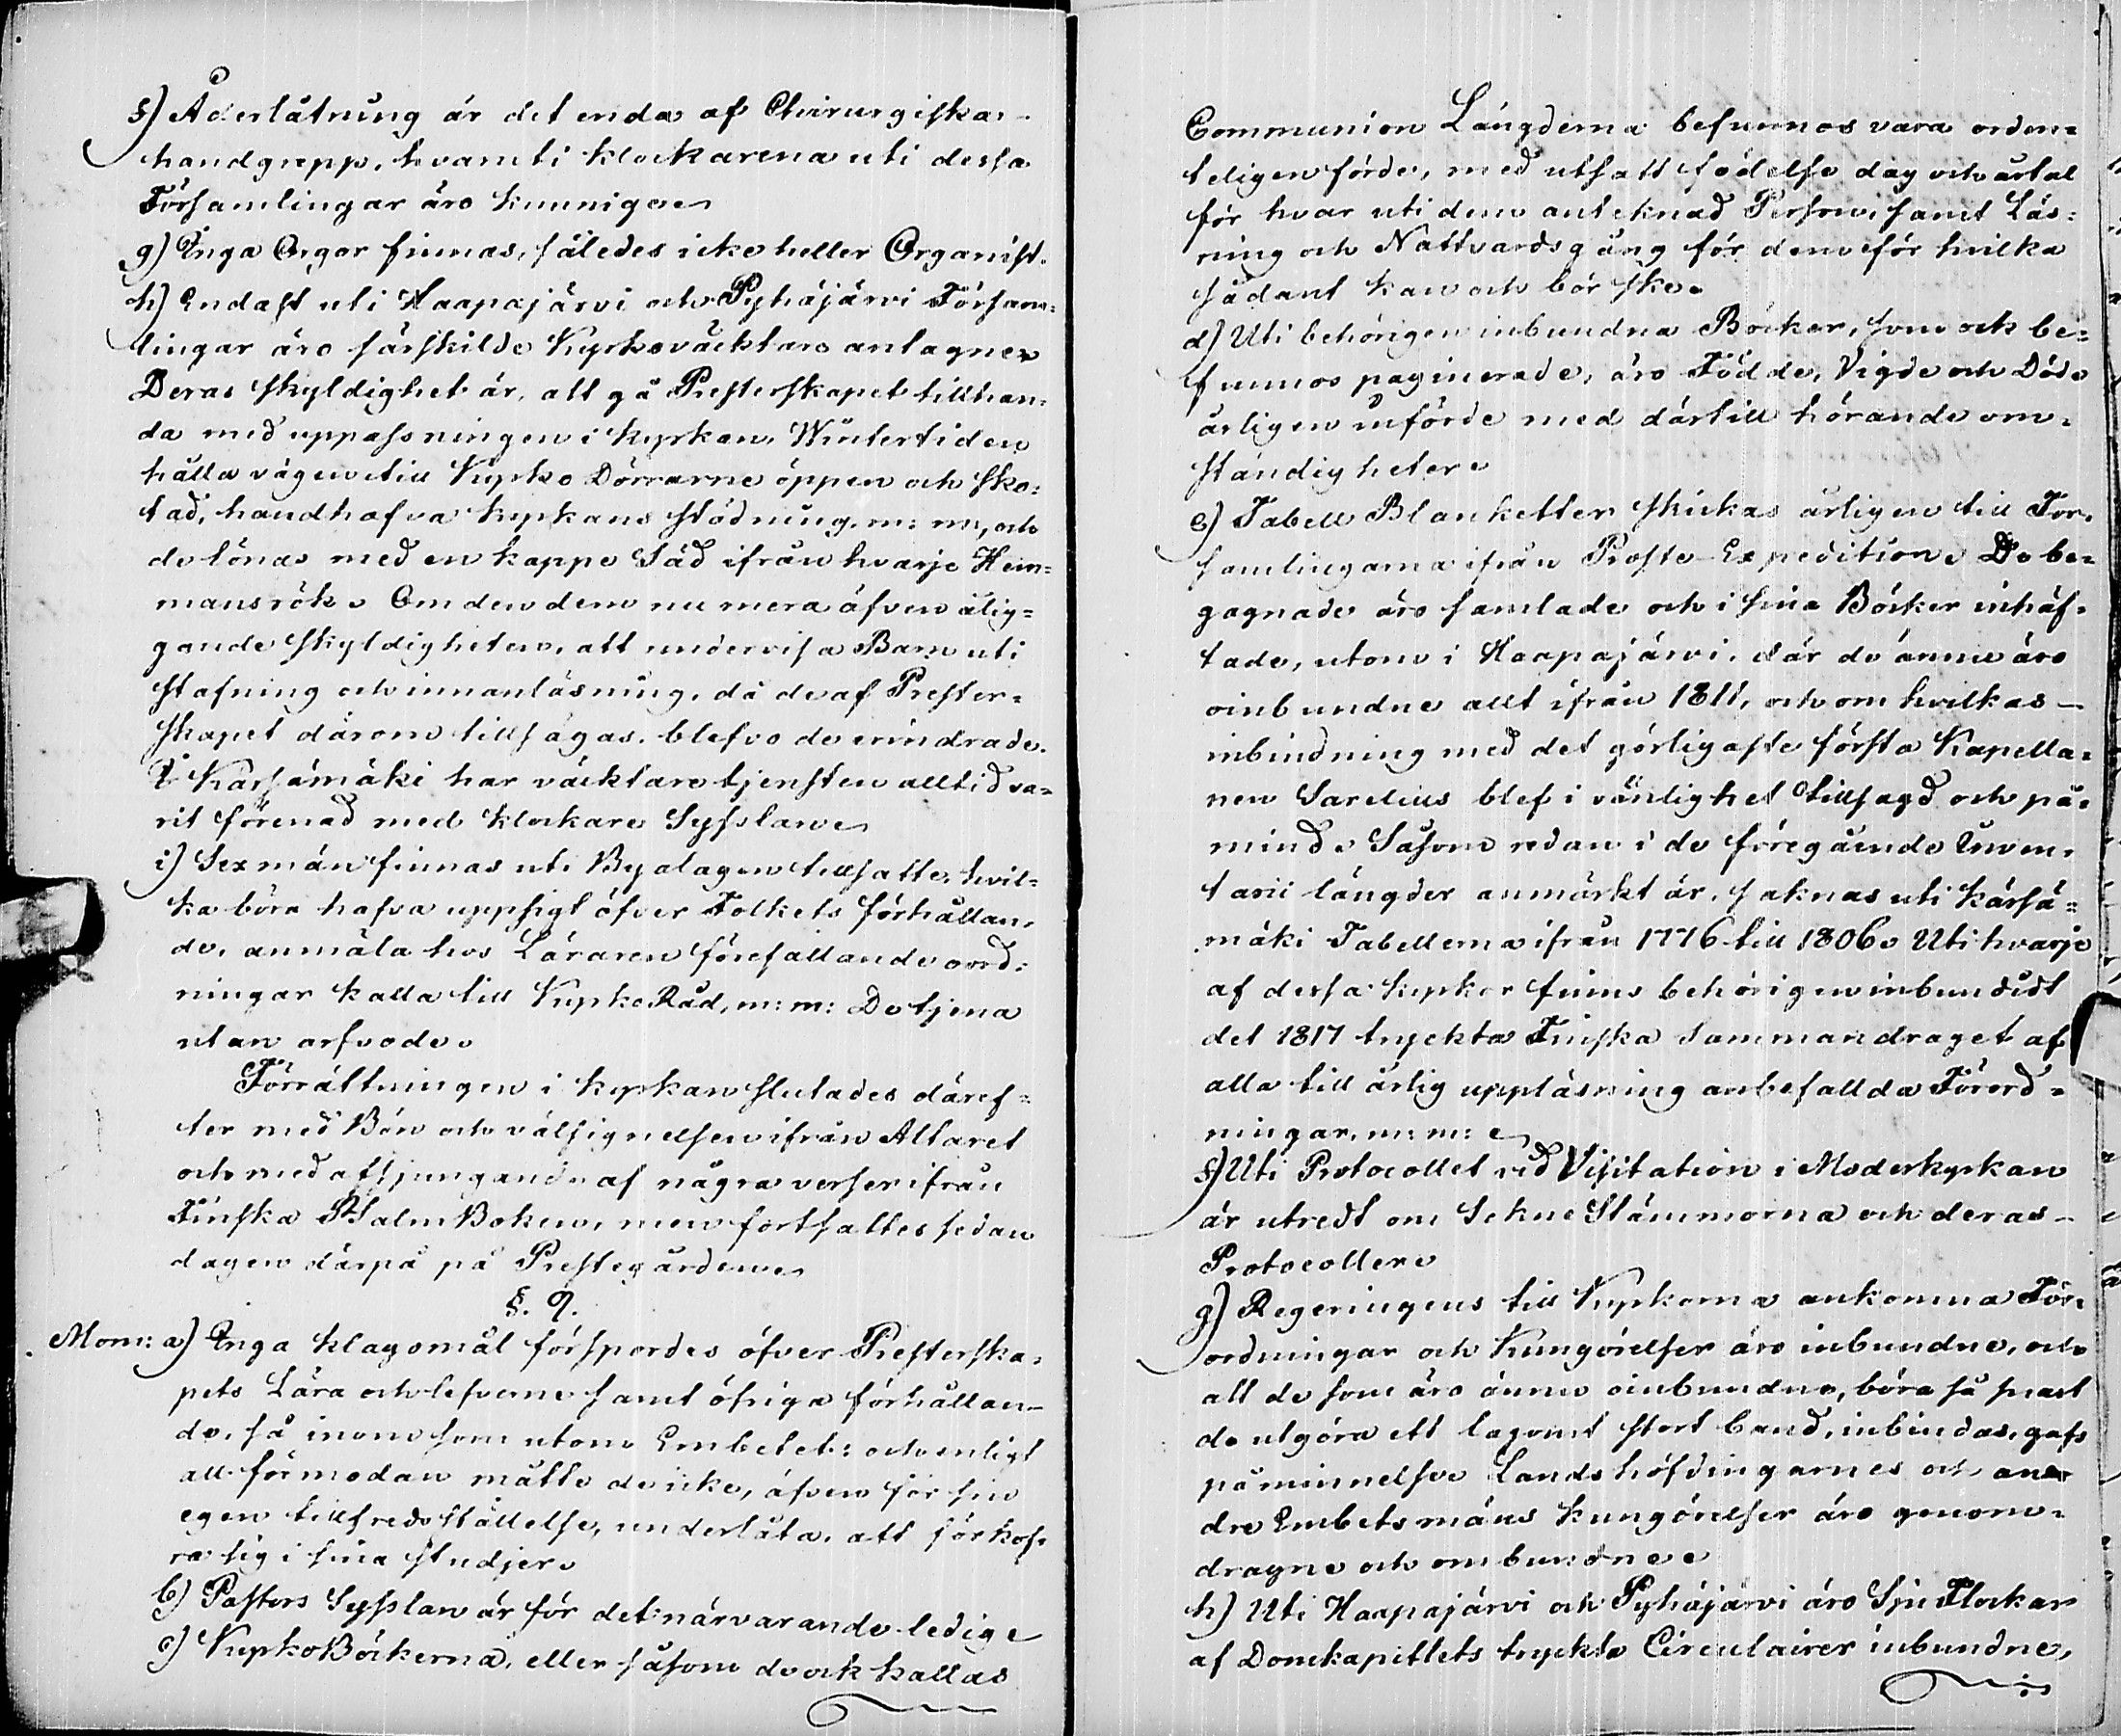 f) Åderlåtning är det enda af Chirurgiska
handgrepp, hvaruti klockarena uti dessa
Församlingar äro kunnige.
g) Inga Orgor finnas, således icke heller Organist.
h) Endast uti Haapajärvi och Pyhäjärvi Försam=
lingar äro särskilde Kyrkoväcktare antagne.
Deras skyldighet är, att gå Presterskapet tillhan=
da med uppassningen i kyrkan, Wintertiden
hålla vägen till Kyrko Dörrarne öppen och sko=
tad, handhafva kyrkans städning, m: m:, och
de lönas med en kappe Säd ifrån hvarje Hem=
mansrök. Om den dem nu mera äfven ålig=
gande skyldigheten, att undervisa Barn uti
stafning och innanläsning, då de af Prester=
skapet därom tillsägas, blefvo de erindrade.
I Kärsämäki har väcktaretjensten alltid va=
rit förenad med klockare Sysslan.
i) Sexmän finnas uti Byalagen tillsatte, hvil=
ka böra hafva uppsigt öfver Folkets förhållan=
de, anmäla hos Läraren förefallande oord=
ningar kalla till KyrkoRåd, m: m: De tjena
utan arfvode.
Förrättningen i kyrkan slutades däref=
ter med Bön och välsignelsen ifrån Altaret
och med afsjungande af några verser ifrån
Finska PsalmBoken, men fortsattes sedan
dagen därpå på Prestegården.
§. 9.
Mom: a) Inga klagomål förspordes öfver Presterska=
pets Lära och lefverne samt öfriga förhållan=
de, så inom som utom Embetet: och enligt
all förmodan måtte de icke, äfven för sin
egen tillfredsställelse, underlåta, att förkof=
ra sig i sina studjer.
b) Pastors Sysslan är för det närvarande ledig.
c) KyrkoBöckerna, eller såsom de ock kallas
Communion Längderna befunnos vara orden=
teligen förde, med utsatt födelse dag och årtal
för hvar uti dem anteknad Person, samt Läs=
ning och Nattvardsgång för dem för hvilka
sådant kan och bör ske.
d) Uti behörigen inbundna Böcker, som ock be=
funnos paginerade, äro Födde, Vigde och Döde
årligen införde med därtill hörande om=
ständigheter.
e) Tabell Blanketter skickas årligen till För=
samlingarna ifrån Proste-Expedition. De be=
gagnade äro samlade och i sina Böcker inhäf=
tade, utom i Haapajärvi, där de ännu äro
oinbundne allt ifrån 1811, och om hvilkas
inbindning med det görligaste första Kapella=
nen Sarelius blef i vänlighet tillsagd och på=
mind. Såsom redan i de föregående Inven=
tarii längder anmärkt är, saknas uti Kärsä=
mäki Tabellerna ifrån 1776 till 1806. Uti hvarje
af dessa kyrkor finns behörigen inbundidt
det 1817 tryckta Finska Sammandraget af
alla till årlig uppläsning anbefallda Förord=
ningar, m: m:
f) Uti Protocollet vid Visitation i Moderkyrkan
är utredt om SokneStämmorna och deras
Protocoller.
g) Regeringens till Kyrkorna ankomna För=
ordningar och Kungörelser äro inbundne, och
att de som äro ännu oinbundne, böra så snart
de utgöra ett lagomt stort band, inbindas, gafs
påminnelse. Landshöfdingarnes och an
dre Embetsmäns kungörelser äro genom=
dragne och ombundne.
h) Uti Haapajärvi och Pyhäjärvi äro Sju Flockar
af Domkapitlets tryckte Circulairer inbundne,